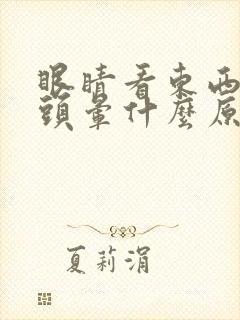 眼睛看東西
頭暈什麼原
夏莉涓